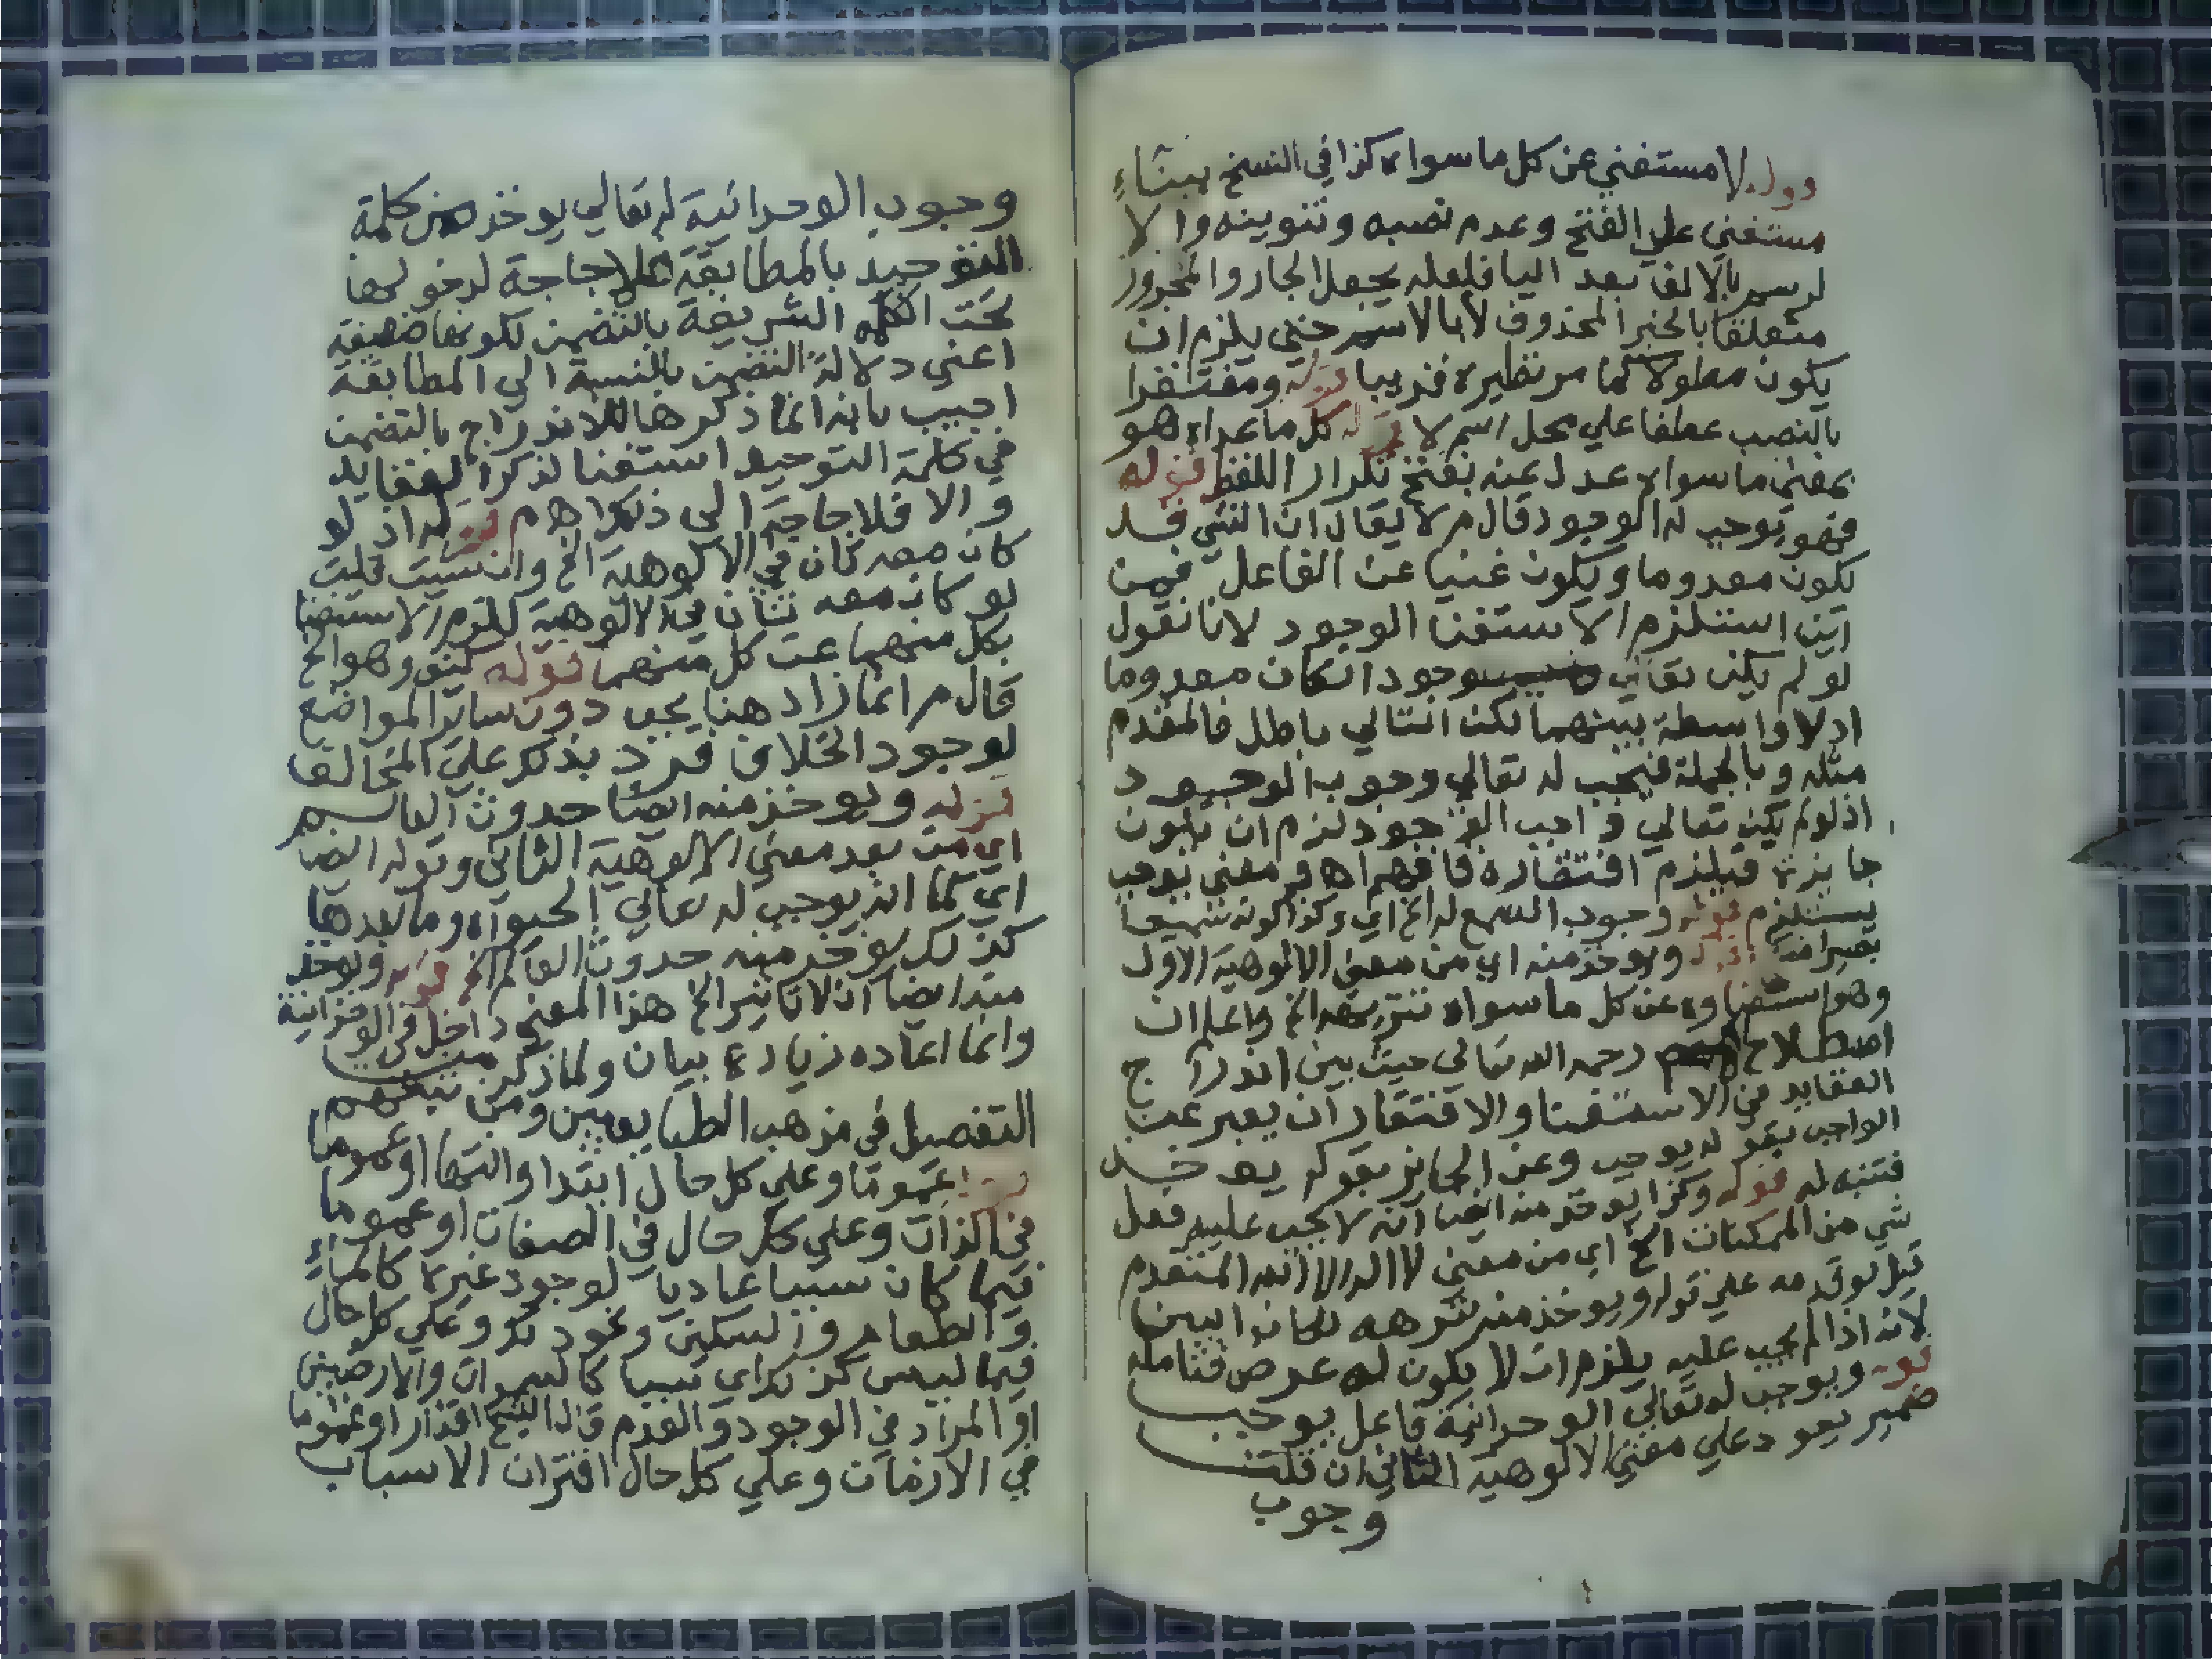 قوله لا مستغني عن كل ما سواه كذا في النسخ ببناء
مستغني علي الفتح وعدم نصبه وتنوينه والا
لرسم بالالف بعد اليا فلعله يجعل الجار والمجرور
متعلقا بالخبر المحذوف لا بالاسم حتي يلزم ان
يكون مطولا كما مر نظيره قريبا قوله ومفتقرا
بالنصب عطفا علي محل اسم لا قوله كل ما عداه هو
بمعني ما سواه عدل عنه بفتح تكرار اللفظ قوله
فهو يوجب له الوجود قال م ر لا يقال ان الشي قد
يكون معدوما ويكون غنيا عن الفاعل فمن
اين استلزم الاستغنا الوجود لانا نقول
لو لم يكن تعالي موجودا لكان معدوما
اذ لا واسطة بينهما لكن التالي باطل فالمقدم
مثله وبالجملة فيجب له تعالي وجوب الوجود
اذ لو لم يكن تعالي واجب الوجود لزم ان يكون
جايزه فيلزم افتقاره فافهم اه ومعني يوجب
يستلزم قوله وجوب السمع له الخ اي وكذا كونه سميعا
بصيرا قوله ويوخذ منه اي من معني الالوهية الاول
وهو استغناوه عن كل ما سواه تنزهه الخ واعلم ان
اصطلاح رحمه الله تعالي حيث بين اندراج
العقايد في الاستغنا والافتقار ان يعبر عن
الواجب بقوله يوجب وعن الجايز بقوله يوخذ
فتنبه له قوله وكذا يوخذ منه ايضا انه لا يجب عليه فعل
شي من الممكنات الخ اي من معني لا اله الا الله المتقدم
قيل لو قدمه علي قوله ويوخذ منه تنزهه لكان ابين
لانه اذا لم يجب عليه يلزم ان لا يكون له عرض فتامله
قوله ويوجب له تعالي الوحدانية فاعل يوجب
ضمير يعود علي معني الالوهية الثاني ان قلت
وجوب
وجوب الوحدانية له تعالي يوخذ من كلمة
التوحيد بالمطابقة فلا حاجة لدخولها
تحت الكلمة الشريفة بالتضمن لكونها ضعيفة
اعني دلالة التضمن بالنسبة الي المطابقة
اجيب بانه انما ذكرها للاندراج بالتضمن
في كلمة التوحيد استغنا لذكر العقايد
والا فلا حاجة الي ذكرها اه م قوله اذ لو
كان معه ثان في الالوهية الخ وان شيت قلت
لو كان معه ثان في الالوهية للزم الاستغنا
بكل منهما عن كل منهما قوله كيف وهو الخ
قال م ر انما زاد هنا يجب دون ساير المواضع
لوجود الخلاف فرد بذكر علي المخالف
قوله ويوخذ منه ايضا حدوث العالم
اي من بعد معني الالوهية الثاني وقوله ايضا
اي كما انه يوجب له تعالي الحيواه وما بعدها
كذلك يوخذ منه حدوث العالم الخ قوله ويوخذ
منه ايضا ان لا تاثير الخ هذا المعني داخل في الوحدانية
وانما اعاده زيادة بيان ولما ذكر من
التفصيل في مذهب الطبايعيين ومن تبعهم
قوله عموما وعلي كل حال ابتدا وانتها او عموما
في الذات وعلي كل حال في الصفات او عموما
فيما كان سببا عاديا لوجود غيره كالماء
والطعام والسكين ونحو ذلك وعلي كل حال
فيما ليس كذلك اي سببا كالسموات والارضين
او المراد في الوجود والعدم قال الشيخ اقدار او عموما
في الازمات وعلي كل حال اقتران الاسباب